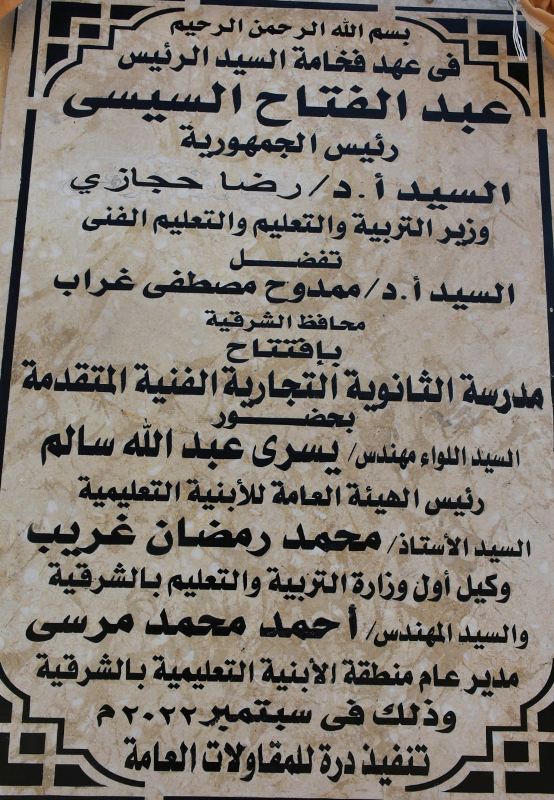 بسم الله الرحمن الرحيم
فى عهد فخامة السيد الرئيس
عبد الفتاح السيسى
رئيس الجمهورية
السيد أ.د/رضا حجازي
وزير التربية والتعليم والتعليم الفنى
تفضل
السيد أ.د/ممدوح مصطفى غراب
محافظ الشرقية
بإفتتاح
مدرسة الثانوية التجارية الفنية المتقدمة
بحضور
السيد اللواء مهندس/ يسرى عبد الله سالم
رئيس الهيئة العامة للأبنية التعليمية
السيد الأستاذ/ محمد رمضان غريب
وكيل أول وزارة التربية والتعليم بالشرقية
والسيد المهندس/ أحمد محمد مرسى
مدير عام منطقة الأبنية التعليمية بالشرقية
وذلك فى سبتمبر ٢٠٢٢م
تنفيذ درة للمقاولات العامة